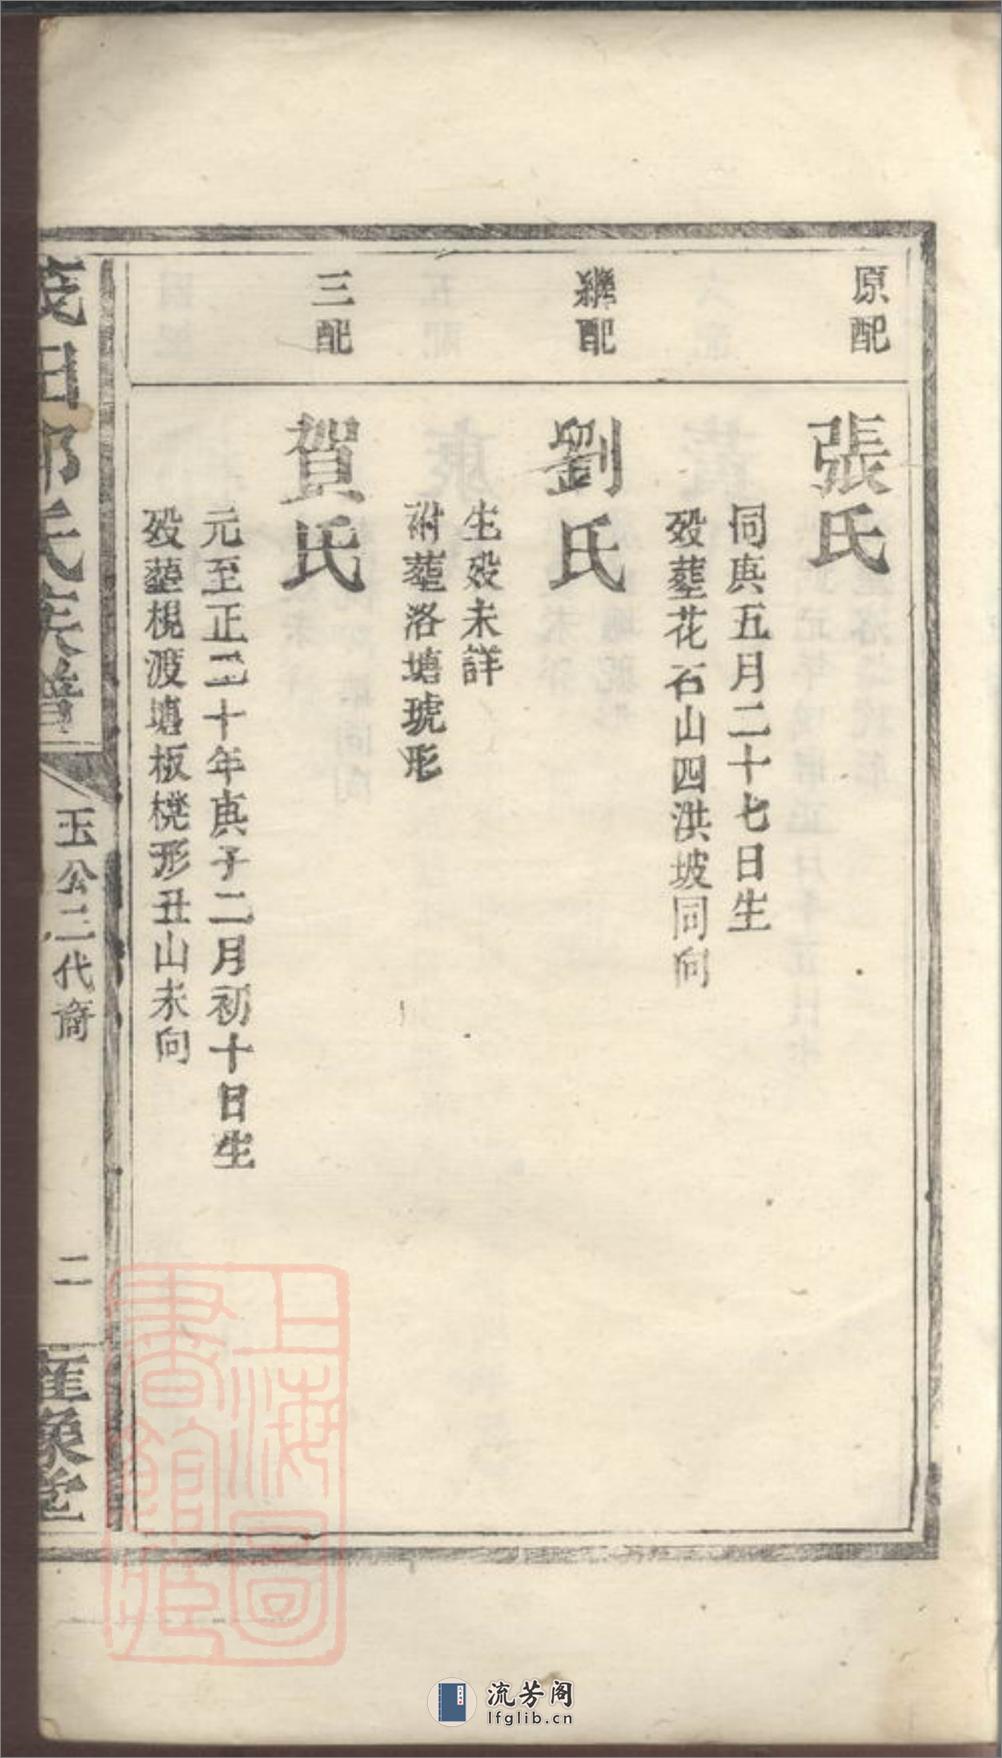 原配
張氏
同庚五月二十七日生
歿塟花石山四洪坡同向
繼配
劉氏
生歿未詳
附塟洛塘琥形
三配
賀氏
元至正二十年庚子二月初十日生
歿塟梘渡塘板櫈形丑山未向
茂田郭氏族譜
玉公二代裔
二
上海圖書館藏
流芳阁
lfglib.cn